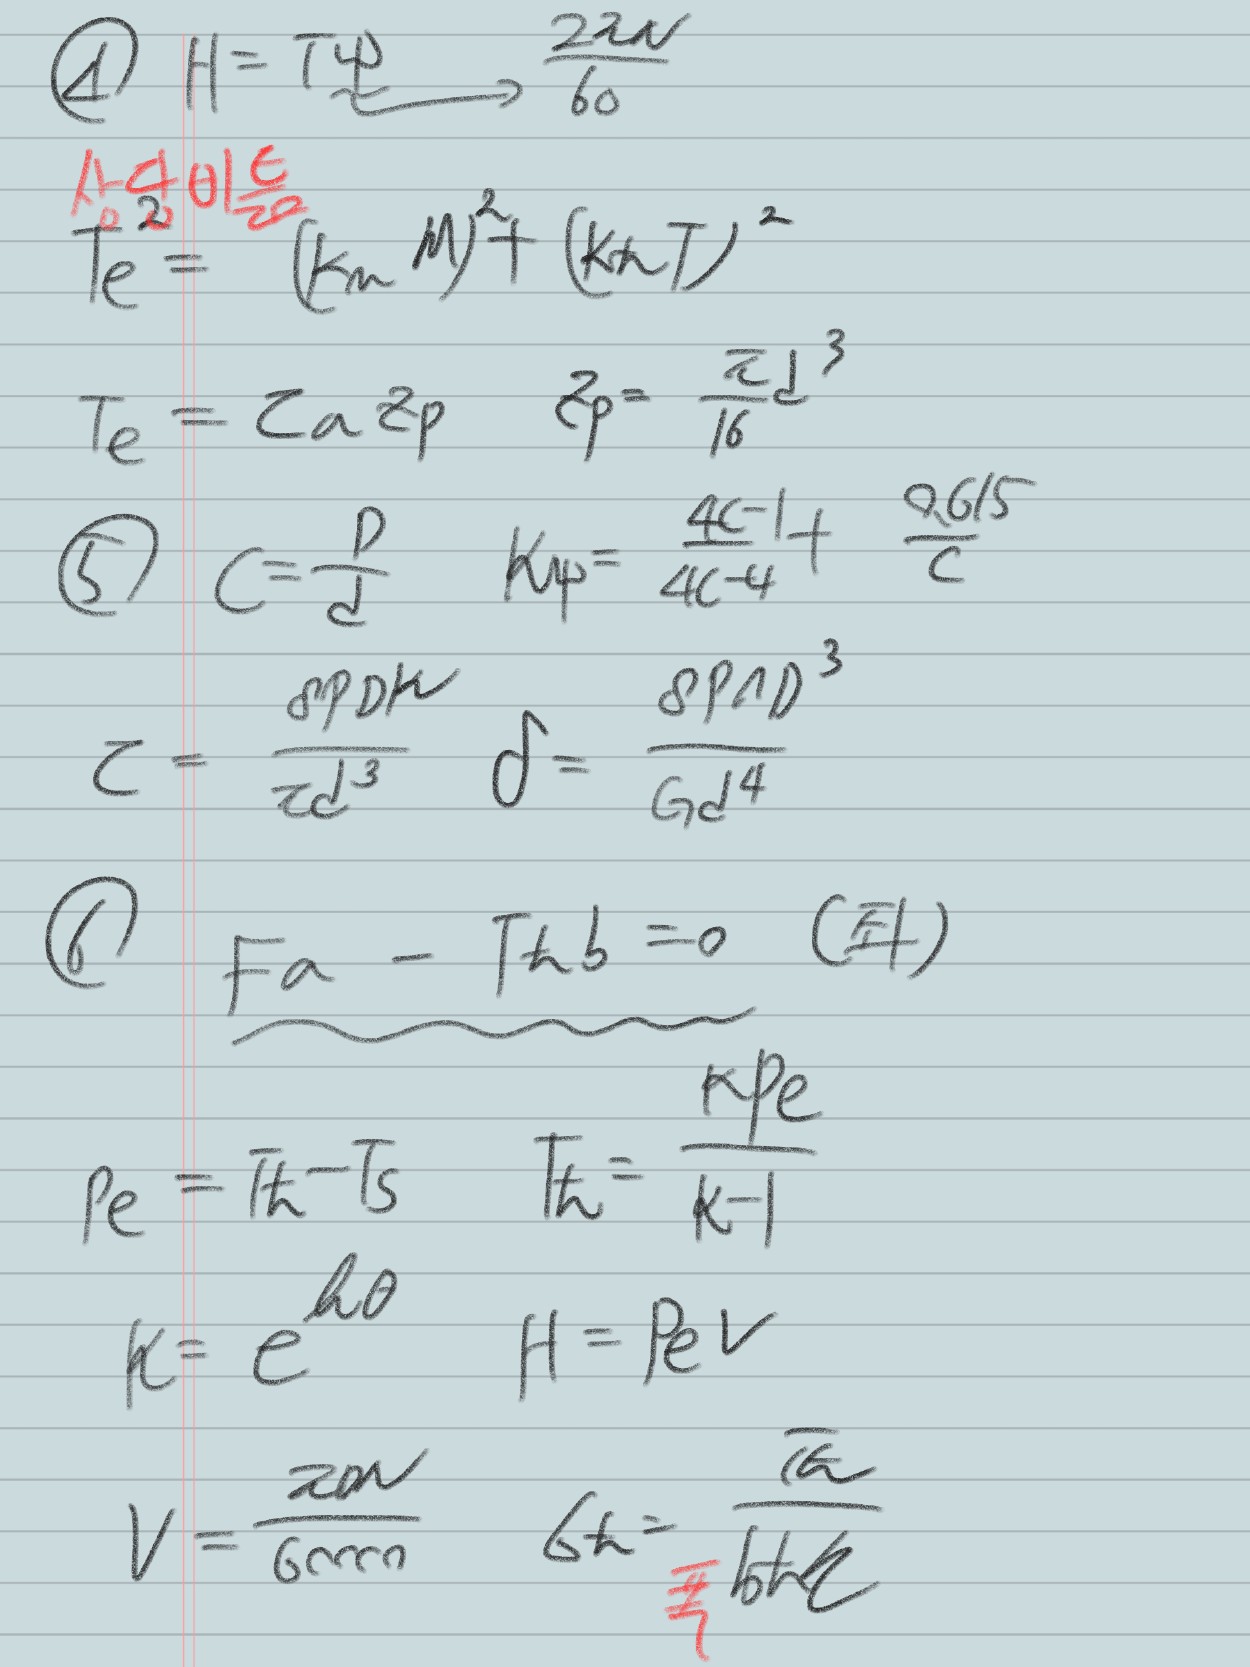 ④ H = Tψ → 2πN/60
상당비틀
Te² = (Km M)² + (Kt T)²
Te = τa Zp Zp = πd³/16
⑤ C = D/d Kψ = 4C-1/4C-4 + 0.615/C
τ = 8PDK/πd³ δ = 8PnD³/Gd⁴
⑥ Fa - Tt b = 0
Pe = Tt - Ts Tt = KPe/K-1
K = e^μθ H = Pe V
V = πDN/60000 σt = Tt/btη
폭